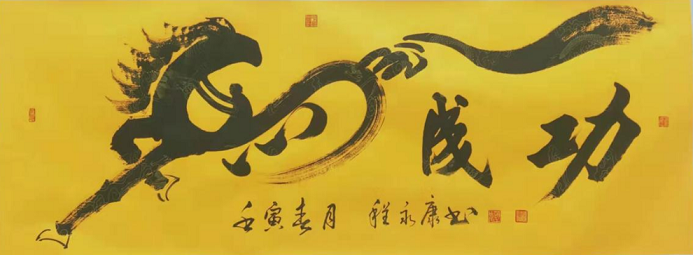 成功
壬寅春月 程永康书